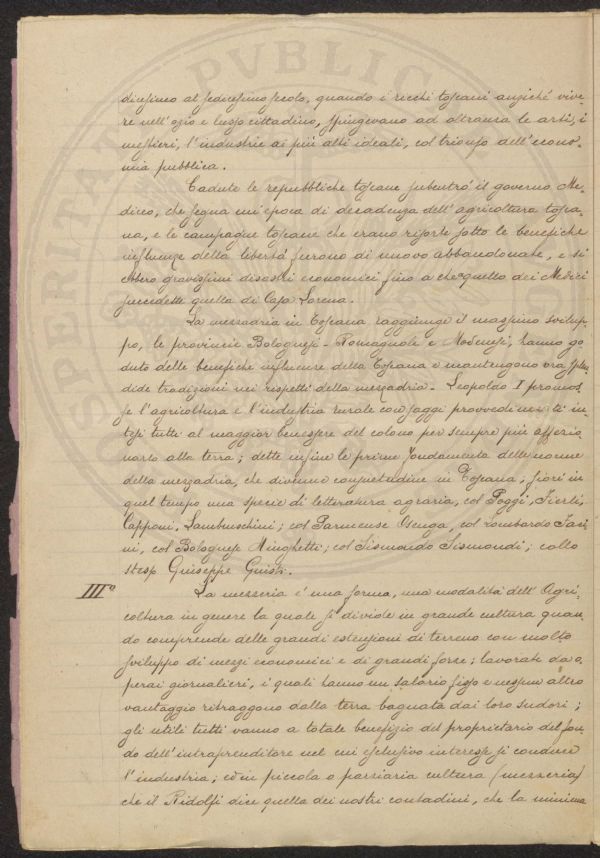 dicesimo al sedicesimo secolo, quando i ricchi toscani anziché vive-
re nell'ozio e lusso cittadino, spingevano ad oltranza le arti, i
mestieri, l'industrie ai più alti ideali, col trionfo dell'econo-
mia pubblica.
Cadute le repubbliche toscane subentrò il governo Me-
diceo, che segna un'epoca di decadenza dell'agricoltura tosca-
na, e le campagne toscane che erano risorte sotto le benefiche
influenze della libertà furono di nuovo abbandonate, e si
ebbero gravissimi disastri economici fino a che a quello dei Medici
succedette quella di Casa Lorena.
La mezzadria in Toscana raggiunge il massimo svilup-
po, le provincie Bolognesi - Romagnole e Modenesi, hanno go-
duto delle benefiche influenze della Toscana e mantengono ora splen-
dide tradizioni nei rispetti della mezzadria - Leopoldo I promos-
se l'agricoltura e l'industria rurale con saggi provvedimenti in-
tesi tutti al maggior benessere del colono per sempre più affezio-
narlo alla terra; dette infine le prime fondamenta delle norme
della mezzadria, che divenne consuetudine in Toscana, fiorì in
quel tempo una specie di letteratura agraria, col Poggi, Fierli,
Capponi, Lambruschini; col Parmense col Lombardo Jaci-
ni, col Bolognese Minghetti; col Sismondo Sismondi; collo
stesso Giuseppe Giusti.
III° La mezzeria è una forma, una modalità dell'Agri-
coltura in genere la quale si divide in grande cultura quan-
do comprende delle grandi estensioni di terreno con molto
sviluppo di mezzi economici e di grandi forze; lavorate da o-
perai giornalieri, i quali hanno un salario fisso e nessun altro
vantaggio ritraggono dalla terra bagnata dai loro sudori;
gli utili tutti vanno a totale benefizio del proprietario del fon-
do dell'intraprenditore nel cui esclusivo interesse si conduce
l'industria; ed in piccola o parziaria cultura (mezzeria)
che il Ridolfi dice quella dei nostri contadini, che la minima
OSPERITAS PVBLIC